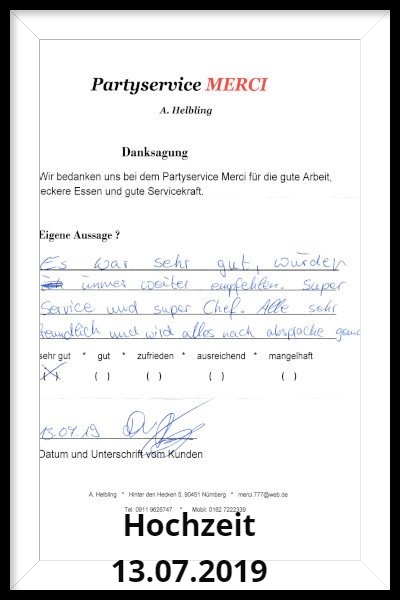 Partyservice MERCI
A. Helbling
Danksagung
Wir bedanken uns bei dem Partyservice Merci für die gute Arbeit,
eckere Essen und gute Servicekraft.
Eigene Aussage ?
Es war sehr gut, würden
immer weiter empfehlen. Super
Service und super Chef. Alle sehr
freundlich und wird alles nach absprache
sehr gut * gut * zufrieden * ausreichend * mangelhaft
(X) ( ) ( ) ( ) ( )
13.07.19
Datum und Unterschrift vom Kunden
A. Helbling * Hinter den Hecken 5, 90451 Nürnberg * merci.777@web.de
Tel: 0911 9626747 * Mobil: 0162 7222339
Hochzeit
13.07.2019